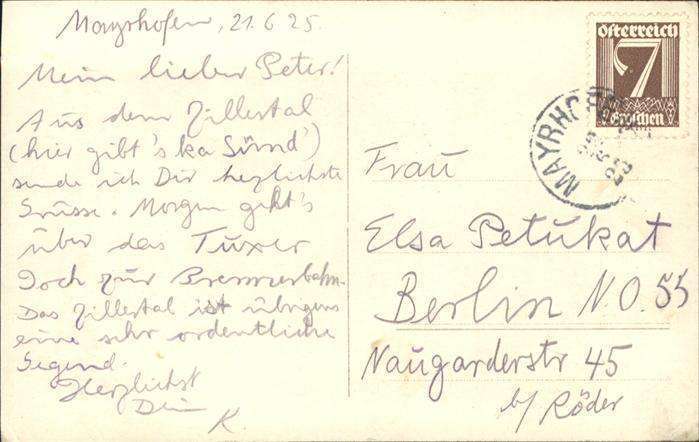 Mayrhofen, 21.6.25.
Mein lieber Peter!
Aus dem Zillertal
(hier gibt's ka Sünd')
sende ich Dir herzlichste
Grüsse. Morgen geht's
über das Tuxer
Joch zur Brennerbahn.
Das Zillertal ist übrigens
eine sehr ordentliche
Gegend.
Herzlichst
Dein
K
österreich
7
Groschen
MAYRHOFEN
Frau
Elsa Petukat
Berlin N.O. 55
Naugarderstr 45
b/ Röder